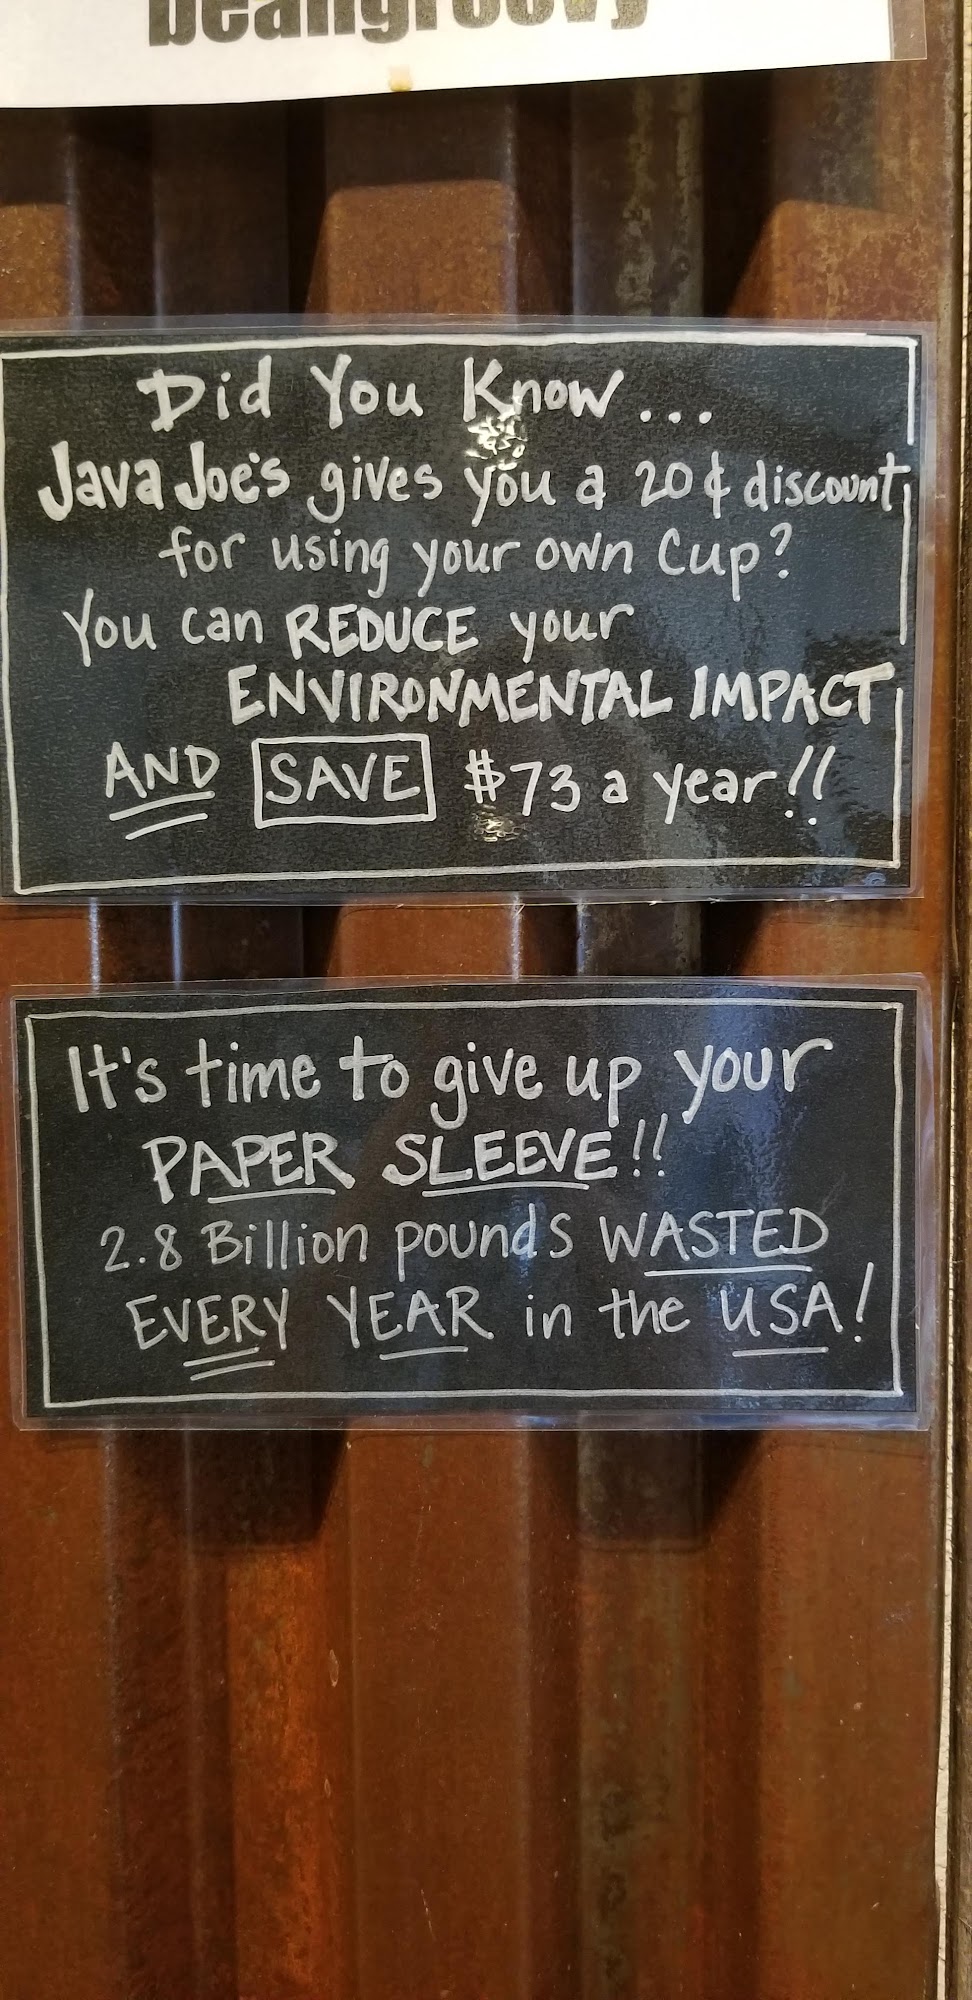 beangroovy
Did You Know...
Java Joe's gives you a 20¢ discount
for using your own Cup?
You can REDUCE your
ENVIRONMENTAL IMPACT
AND SAVE $73 a year!!
It's time to give up your
PAPER SLEEVE!!
2.8 Billion pounds WASTED
EVERY YEAR in the USA!